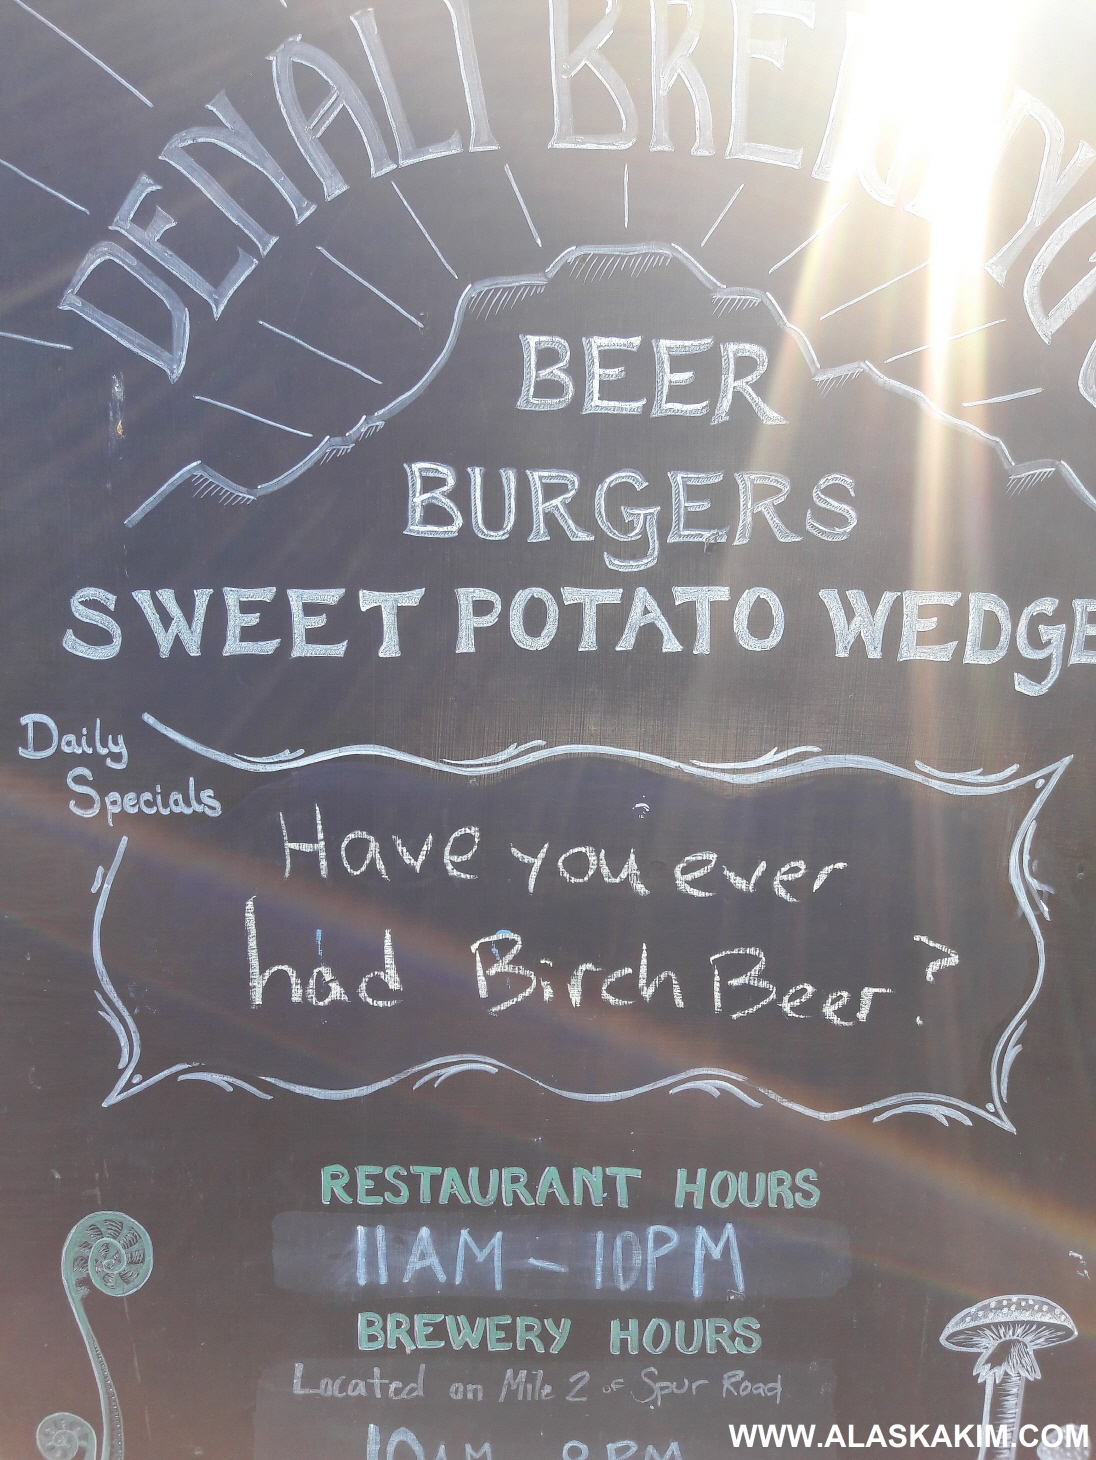 DENALI BREWING
BEER
BURGERS
SWEET POTATO WEDGE
Daily
Specials
Have you ever
had Birch Beer?
RESTAURANT HOURS
11AM - 10PM
BREWERY HOURS
Located on Mile 2 of Spur Road
10AM - 8PM
WWW.ALASKAKIM.COM